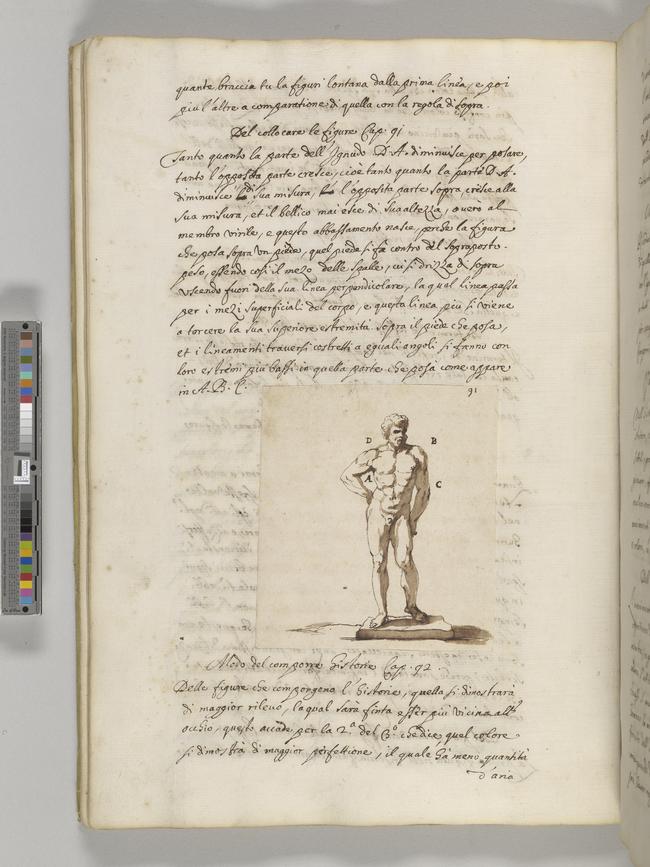 quante braccia tu la figuri lontana dalla prima linea, e poi
piu l'altre a comparatione di quella con la regola di sopra.
Del collocare le figure Cap. 91
Tanto quanto la parte dell'Ignudo D.A. diminuisce per posare,
tanto l'opposita parte cresce, cioè tanto quanto la parte D.A.
diminuisce di sua misura, l'opposita parte sopra cresce alla
sua misura, et il bellico mai esce di sua altezza, overo al
membro virile, e questo abbassamento nasce, perche la figura
che posa sopra un piede, quel piede si fà contro del sopraposto
peso, essendo cosi il mezo delle spalle, vi si drizza di sopra
uscendo fuori della sua linea perpendicolare, la qual linea passa
per i mezi superficiali del corpo, e questa linea piu si viene
a torcere la sua superiore estremità sopra il piede che posa,
et i lineamenti traversi costretti a eguali angoli si fanno con
loro estremi più bassi in quella parte che posa come appare
in A. B. C.
91
D B
A C
Modo del comporre historie Cap. 92
Delle figure che compongono l'historie, quella si dimostrarà
di maggior rilevo, la qual sarà finta esser più vicina all'
occhio, questo accade per la 2.ª del 3.º che dice, quel colore
si dimostra di maggior perfettione, il quale hà meno quantità
d'aria